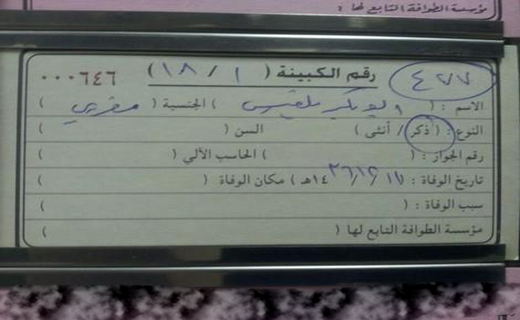 مؤسسة الطوافة التابع لها :
٤٧٧ رقم الكبينة ( ١ / ١٨ ) ٠٠٠٦٤٦
الاسم : ( ) الجنسية ( مغربي )
النوع : ( ذكر / أنثى ) السن ( )
رقم الجواز : ( ) الحاسب الآلي ( )
تاريخ الوفاة : ١٧ / ١٢ / ١٤٣٦هـ ) مكان الوفاة ( )
سبب الوفاة : ( )
مؤسسة الطوافة التابع لها ( )